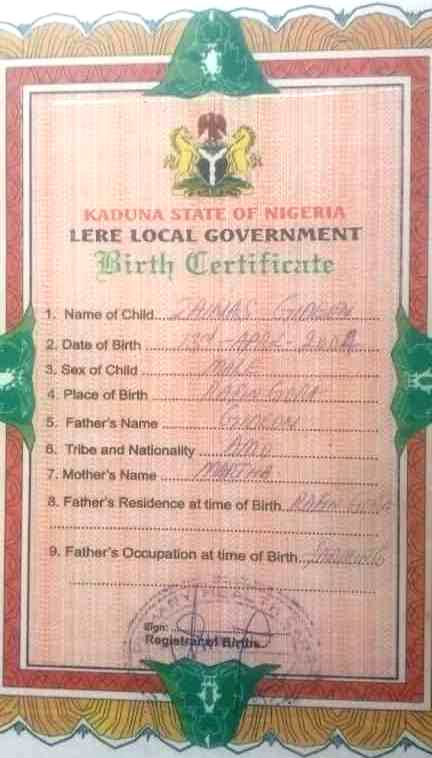 KADUNA STATE OF NIGERIA
LERE LOCAL GOVERNMENT
Birth Certificate
1. Name of Child
2. Date of Birth 13rd - APRIL -
3. Sex of Child MALE
4. Place of Birth RAFIN GURA
5. Father's Name GIDEON
6. Tribe and Nationality
7. Mother's Name MARTHA
8. Father's Residence at time of Birth RAFIN GURA
9. Father's Occupation at time of Birth
Sign:
Registrar of Births